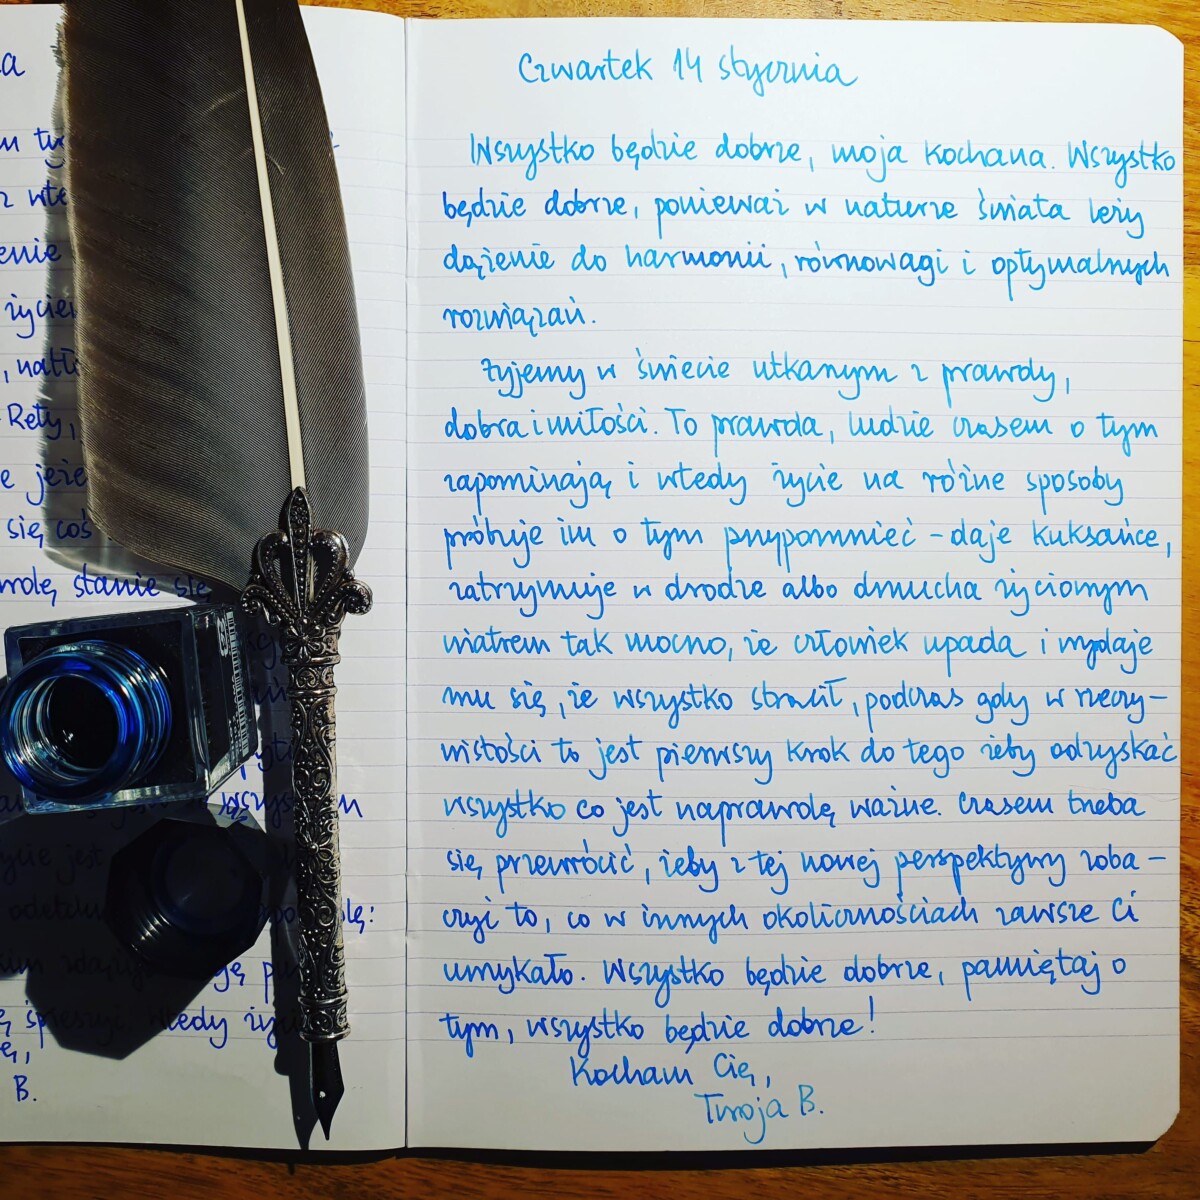 a
Czwartek 14 stycznia
Wszystko będzie dobrze, moja kochana. Wszystko
będzie dobrze, ponieważ w naturze świata leży
dążenie do harmonii, równowagi i optymalnych
rozwiązań.
Żyjemy w świecie utkanym z prawdy,
dobra i miłości. To prawda, ludzie czasem o tym
zapominają i wtedy życie na różne sposoby
próbuje im o tym przypomnieć – daje kuksańce,
zatrzymuje w drodze albo dmucha życiowym
wiatrem tak mocno, że człowiek upada i wydaje
mu się, że wszystko stracił, podczas gdy w rzeczy-
wistości to jest pierwszy krok do tego żeby odzyskać
wszystko co jest naprawdę ważne. Czasem trzeba
się przewrócić, żeby z tej nowej perspektywy zoba-
czyć to, co w innych okolicznościach zawsze Ci
umykało. Wszystko będzie dobrze, pamiętaj o
tym, wszystko będzie dobrze!
Kocham Cię,
Twoja B.
enie
życie
Rety,
się coś
stanie się
wtedy
B.